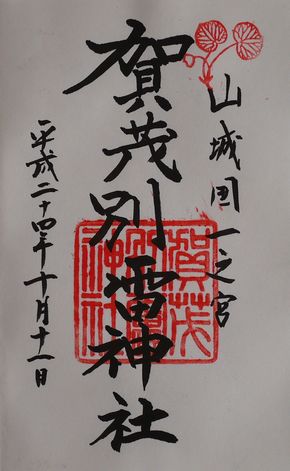 山城国一之宮
賀茂別雷神社
平成二十四年十月十一日
賀茂別雷神社